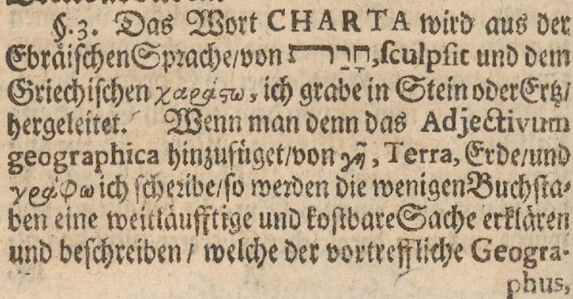 §. 3. Das Wort CHARTA wird aus der
Ebräischen Sprache/von חָרַת, sculpsit und dem
Griechischen χαράττω, ich grabe in Stein oder Ertz/
hergeleitet. Wenn man denn das Adjectivum
geographica hinzufüget/von γῆ, Terra, Erde/und
γράφω ich scheribe/so werden die wenigen Buchsta-
ben eine weitläufftige und kostbare Sache erklären
und beschreiben / welche der vortreffliche Geogra-
phus,